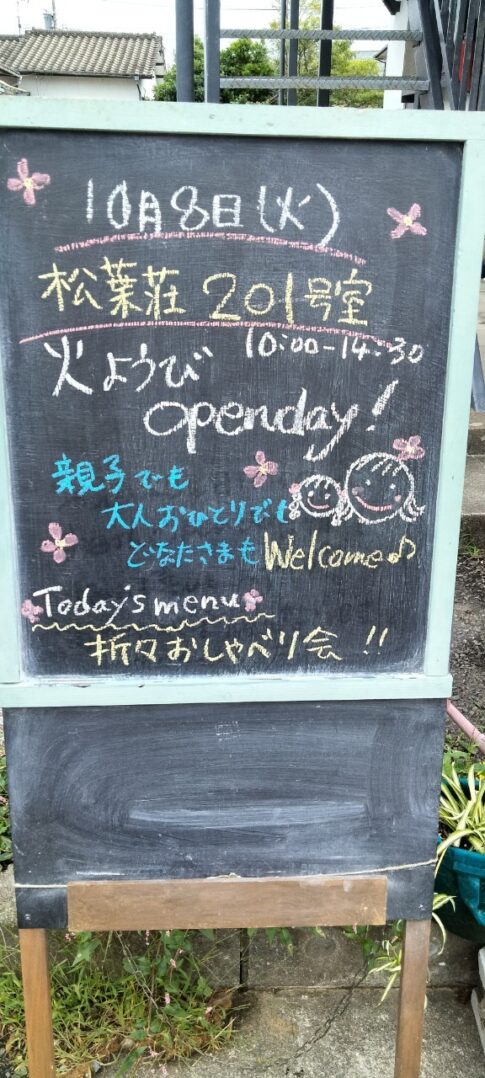 10月8日(火)
松葉荘 201号室
10:00-14:30
火ようび
openday!
親子でも
大人おひとりでも
どなたさまもWelcome♪
Today's menu
折々おしゃべり会 !!